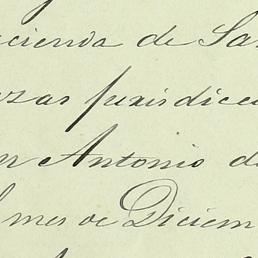 cienda de Sa
zas jurisdicc
n Antonio de
l mes de Diciem